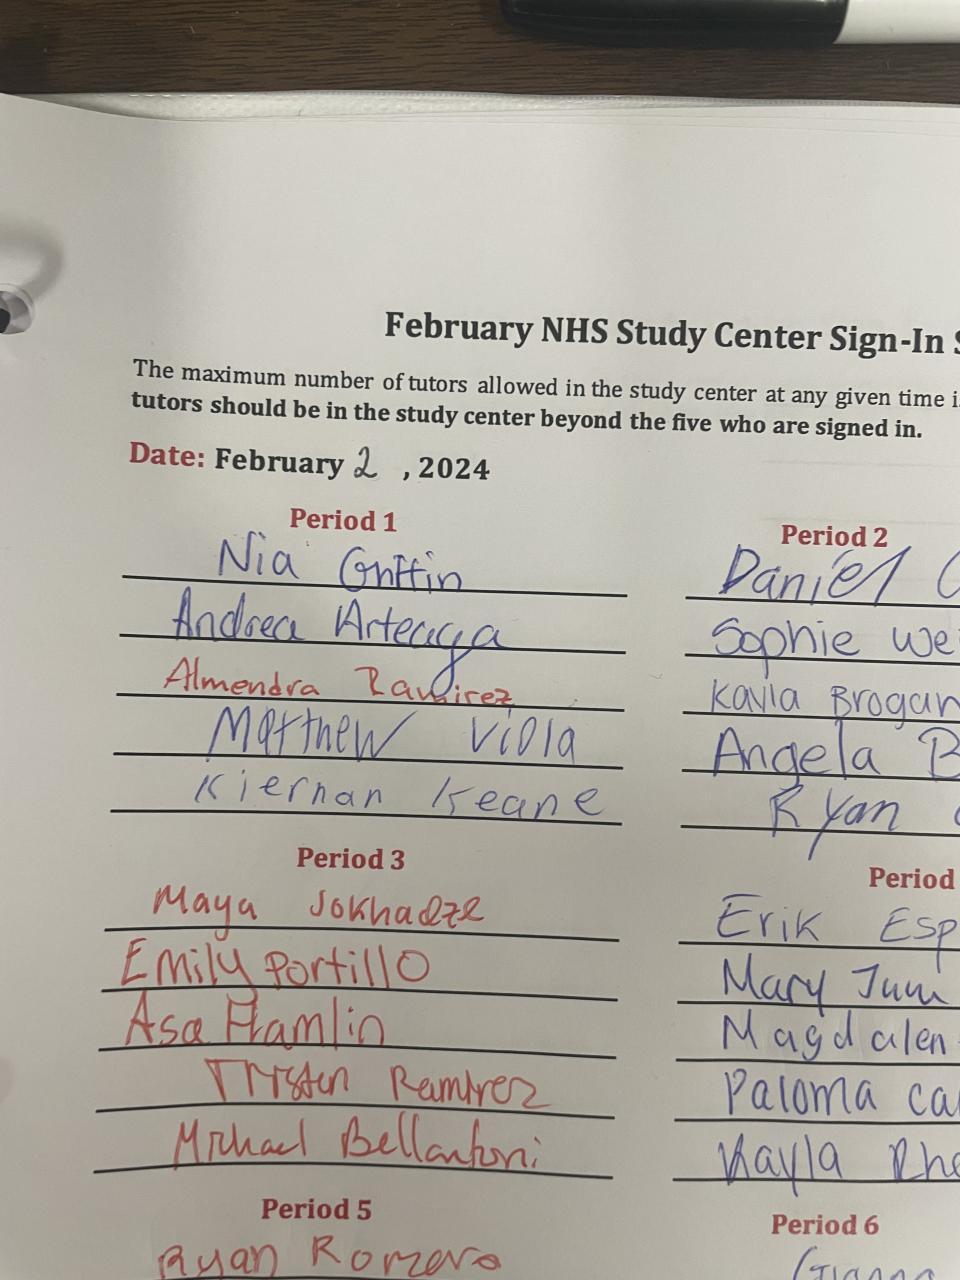 February NHS Study Center Sign-In S
The maximum number of tutors allowed in the study center at any given time i
tutors should be in the study center beyond the five who are signed in.
Date: February 2 , 2024
Period 1
Nia Griffin
Andrea Arteaga
Almendra Ramirez
Matthew Viola
Kiernan Keane
Period 2
Daniel
Sophie We
Kayla Brogan
Angela B
Ryan
Period 3
Maya Jokhadze
Emily Portillo
Asa Hamlin
Trysten Ramirez
Michael Bellantoni
Period
Erik Esp
Mary Juni
Magdalen
Paloma ca
Kayla Rho
Period 5
Ryan Romero
Period 6